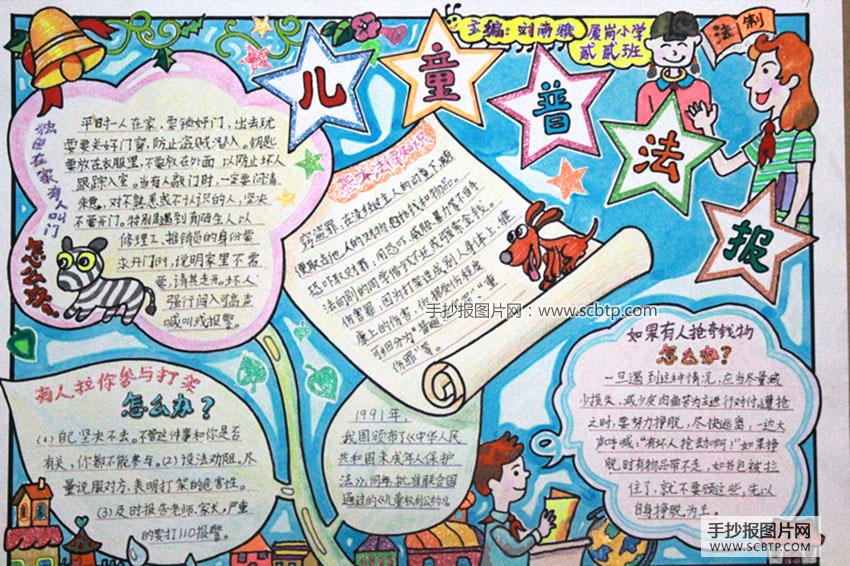 主编：刘雨雅 厦岗小学
贰贰班
法制
儿童普法报
独自在家有人叫门
怎么办
平时一人在家，要锁好门，出去玩
要关好门窗，防止盗贼潜入。钥匙
要放在衣服里，不要放在外面，以防止坏人
跟踪入室。当有人敲门时，一定要问清
来意，对不熟悉或不认识的人，坚决
不要开门。特别是遇到有陌生人以
修理工、推销员的身份要
求开门时，说明家里不需
要，请其走开。坏人
强行闯入可高声
喊叫或报警。
法律知识
窃盗罪，在没经过主人的
便取走他人的财物包括钱和物品。
恐吓取财罪：用恐吓、威胁、暴力等不当手
法向别的同学借钱不还或强索金钱。
伤害罪 因为打架造成别人身体上、健
康上的伤害，依据受伤程度
可细分为“普通伤害罪”“重
伤罪”等。
手抄报图片网：www.scbtp.com
有人拉你参与打架
怎么办？
(1)自己坚决不去。不管这件事和你是否
有关，你都不能参与。(2)设法劝阻。尽
量说服对方，表明打架的危害性。
(3)及时报告老师、家长。严重
的要打110报警。
1991年，
我国颁布了《中华人民
共和国未成年人保护
法》，同年批准联合国
通过的《儿童权利公约》。
如果有人抢夺钱物
怎么办？
一旦遇到这种情况，应当尽量减
少损失、减少皮肉痛苦为主进行对付。遭抢
之时，要努力挣脱，尽快逃离，一边大
声呼喊，“有坏人抢劫啊！”如果挣
脱时有物品带不走，如书包被拉
住了，就不要顾这些，先以
自身挣脱为主。
手抄报图片网
WWW.SCBTP.COM